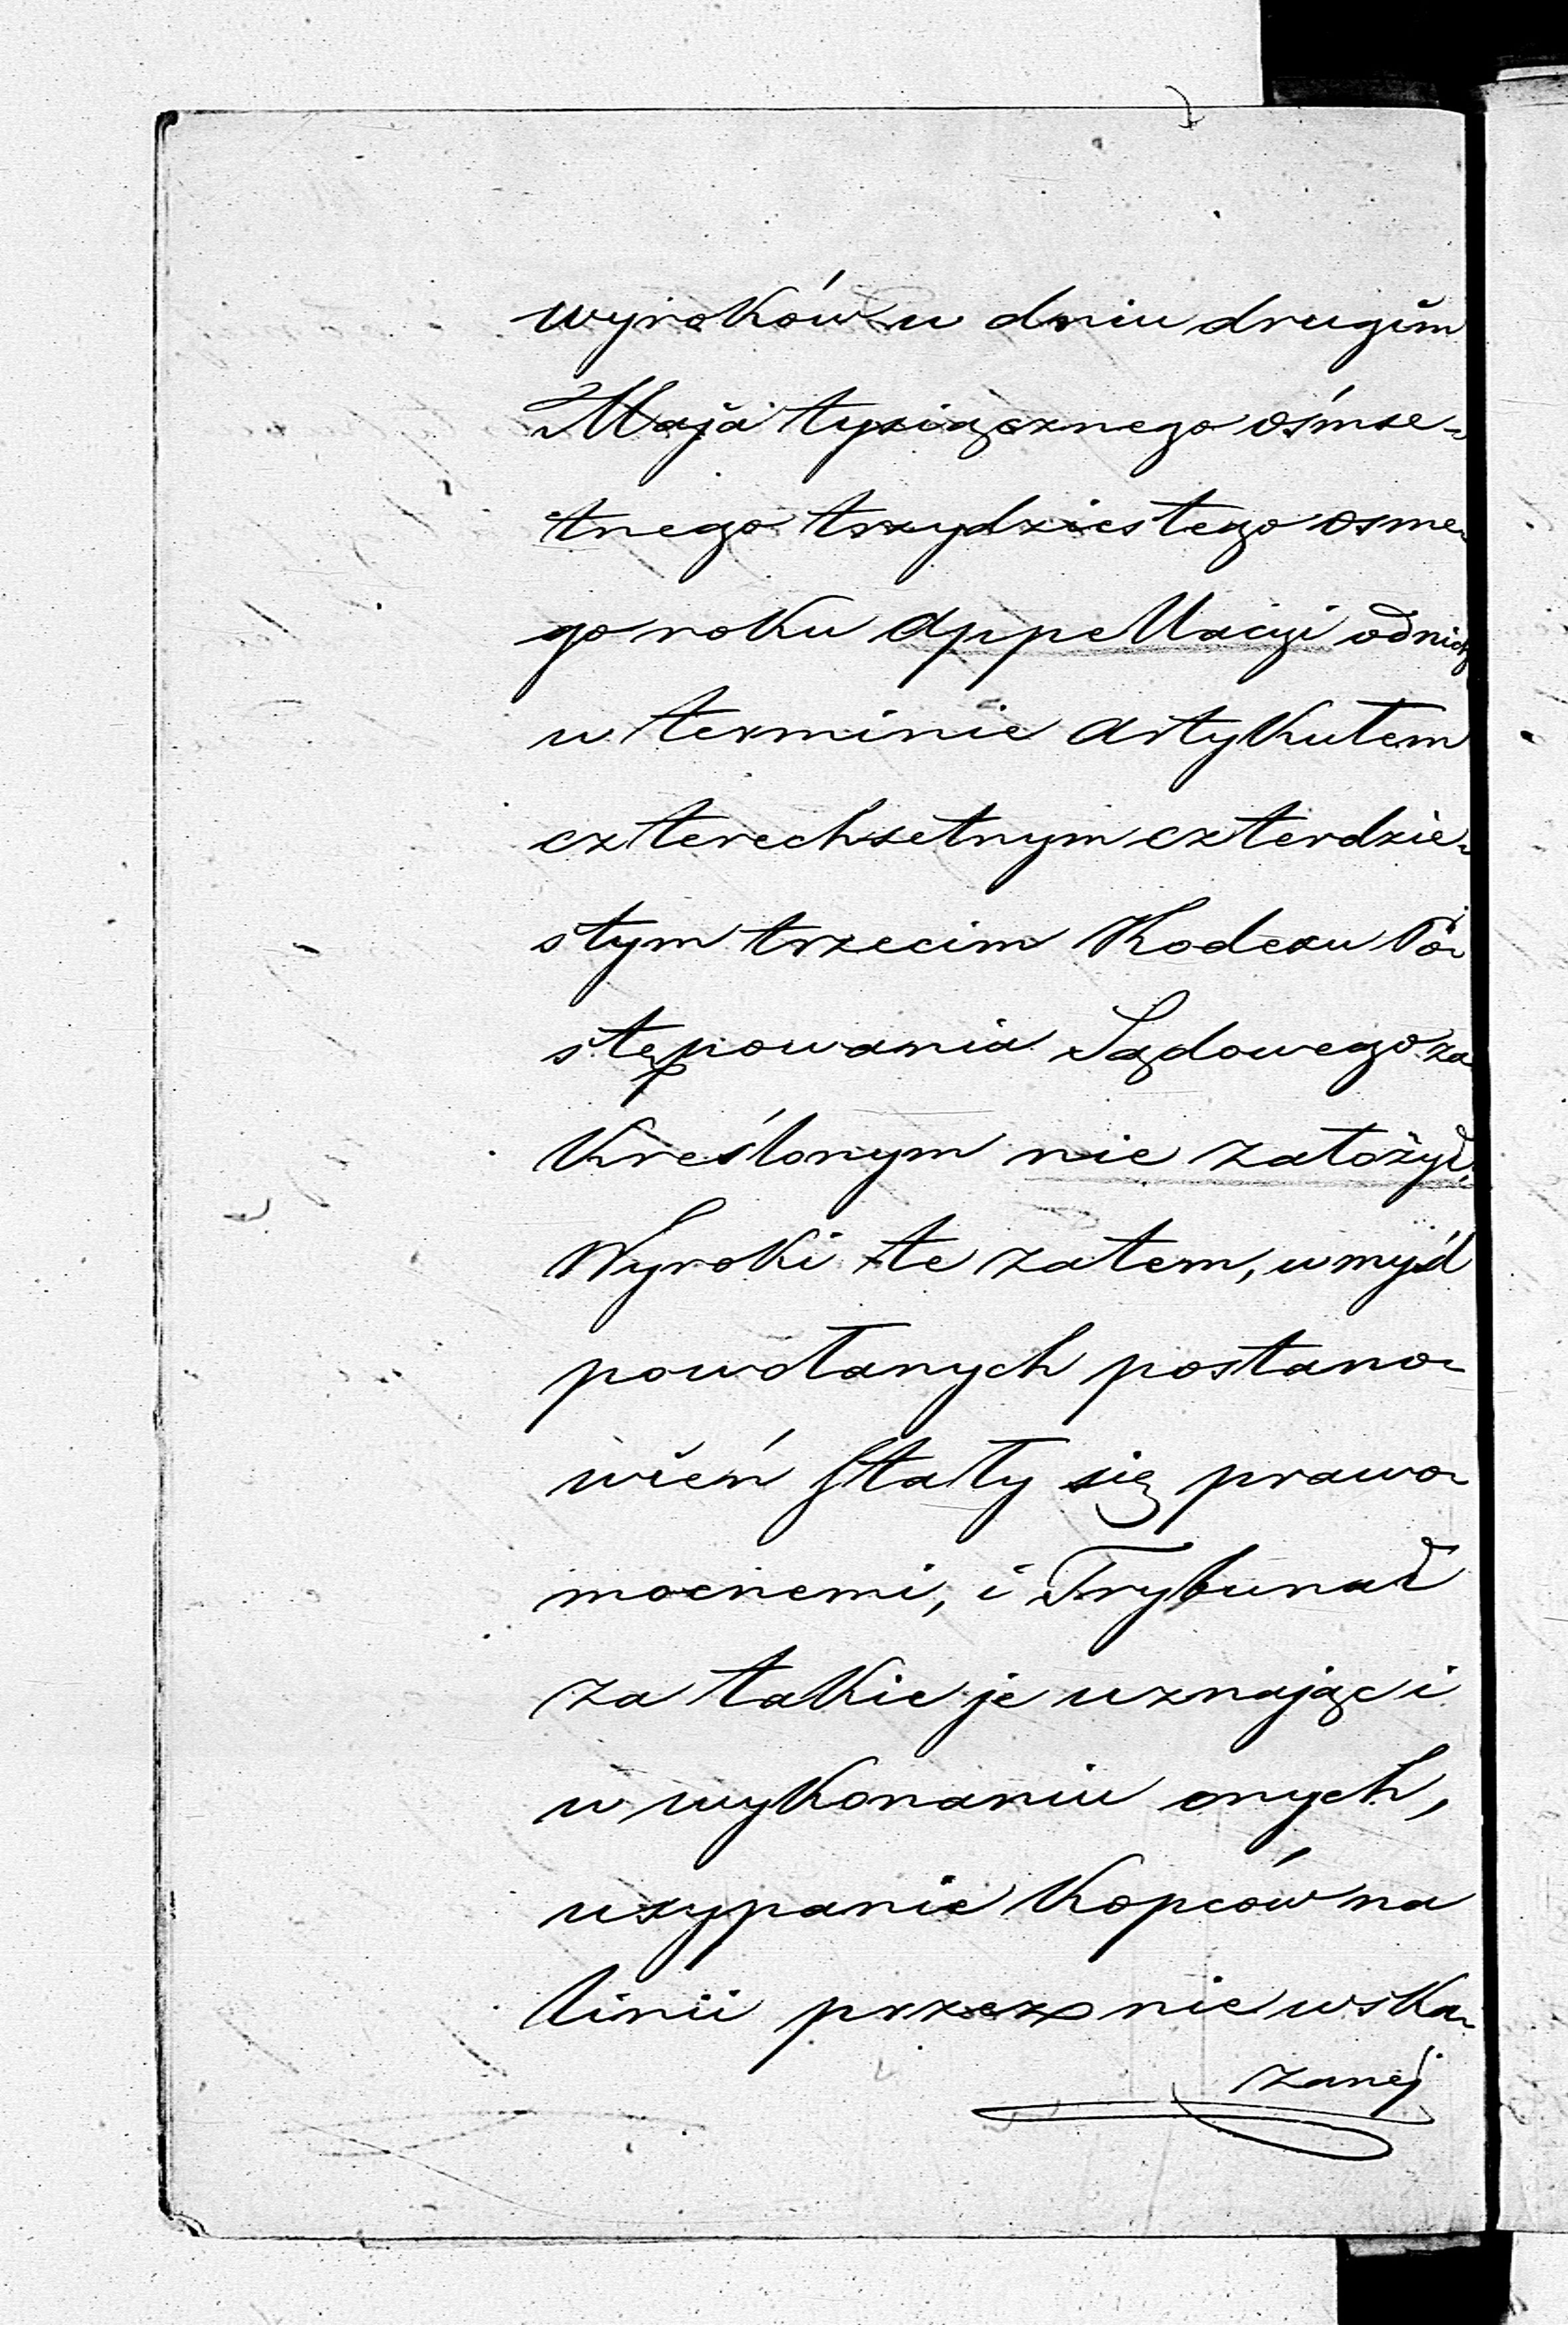 wyroków w dniu drugim
Maja tysiącznego ośmse-
tnego trzydziestego osme-
go roku appellacyi od nich
w terminie artykułem
czterechsetnym czterdzie-
stym trzecim Kodexu Po-
stępowania Sądowego za-
kreślonym nie założył.
Wyroki te zatem, w myśl
powołanych postano-
wień stały się prawo-
mocnemi, i Trybunał
za takie je uznając i
w wykonaniu onych,
usypanie kopców na
linii przez nie wska-
zanéj